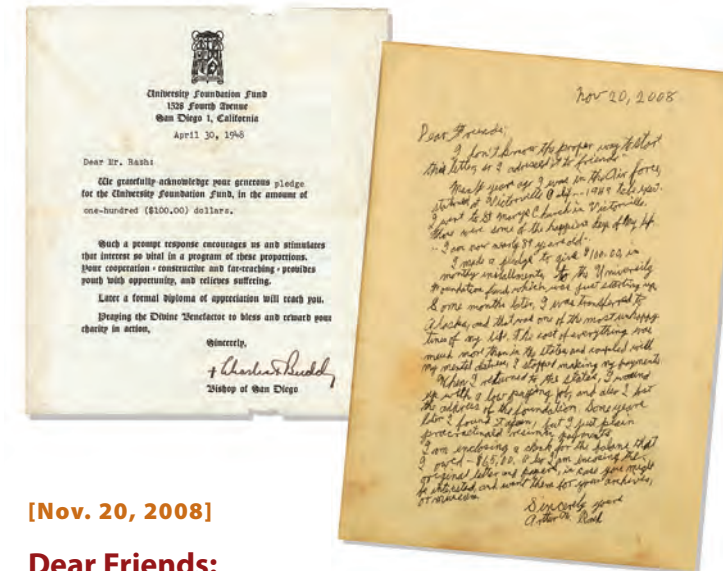 University Foundation Fund
1528 Fourth Avenue
San Diego 1, California
April 30, 1948
Dear Mr. Rash:
We gratefully acknowledge your generous pledge
for the University Foundation Fund, in the amount of
one-hundred ($100.00) dollars.
Such a prompt response encourages us and stimulates
that interest so vital in a program of these proportions.
Your cooperation - constructive and far-reaching - provides
youth with opportunity, and relieves suffering.
Later a formal diploma of appreciation will reach you.
Praying the Divine Benefactor to bless and reward your
charity in action,
Sincerely,
+ Charles F. Buddy
Bishop of San Diego
Nov 20, 2008
Dear Friends;
I don't know the proper way to start
this letter, so I adressed it to friends"
Many years ago I was in the Air force,
stationed at Victorville
I went to St Marys Church in Victorville.
those were some of the happiest days of my life.
I am now nearly 89 years old.
I made a pledge to give $100.00, in
monthly installments, to the University
Foundation fund which was just starting up
Some months later, I was transferred to
Alaska, and that was one of the most unhappy
times of my life. The cost of everything was
much more than in the states, and coupled with
my mental distress, I stopped making my payments
When I returned to the states, I wound
up with a low paying job, and also I lost
the address of the foundation. Some years
later I found it again, but I just plain
procrastinated payments
I am enclosing a check for the balance that
I owed - $65.00. also I am enclosing the
original letter and papers, in case you might
be interested, and want them for your archives,
or museum.
Sincerely yours
Arthur Rash
[Nov. 20, 2008]
Dear Friends: